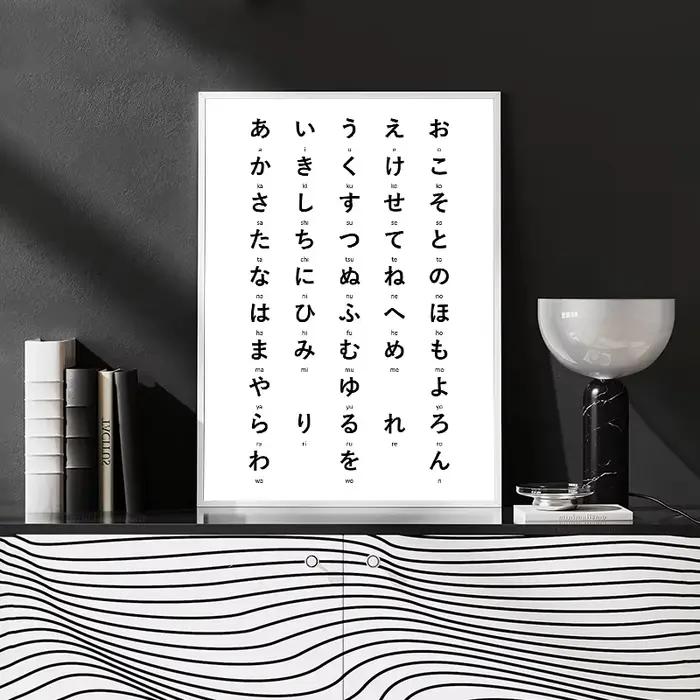 あ い う え お
a i u e o
か き く け こ
ka ki ku ke ko
さ し す せ そ
sa shi su se so
た ち つ て と
ta chi tsu te to
な に ぬ ね の
na ni nu ne no
は ひ ふ へ ほ
ha hi fu he ho
ま み む め も
ma mi mu me mo
や ゆ よ
ya yu yo
ら り る れ ろ
ra ri ru re ro
わ を ん
wa wo n